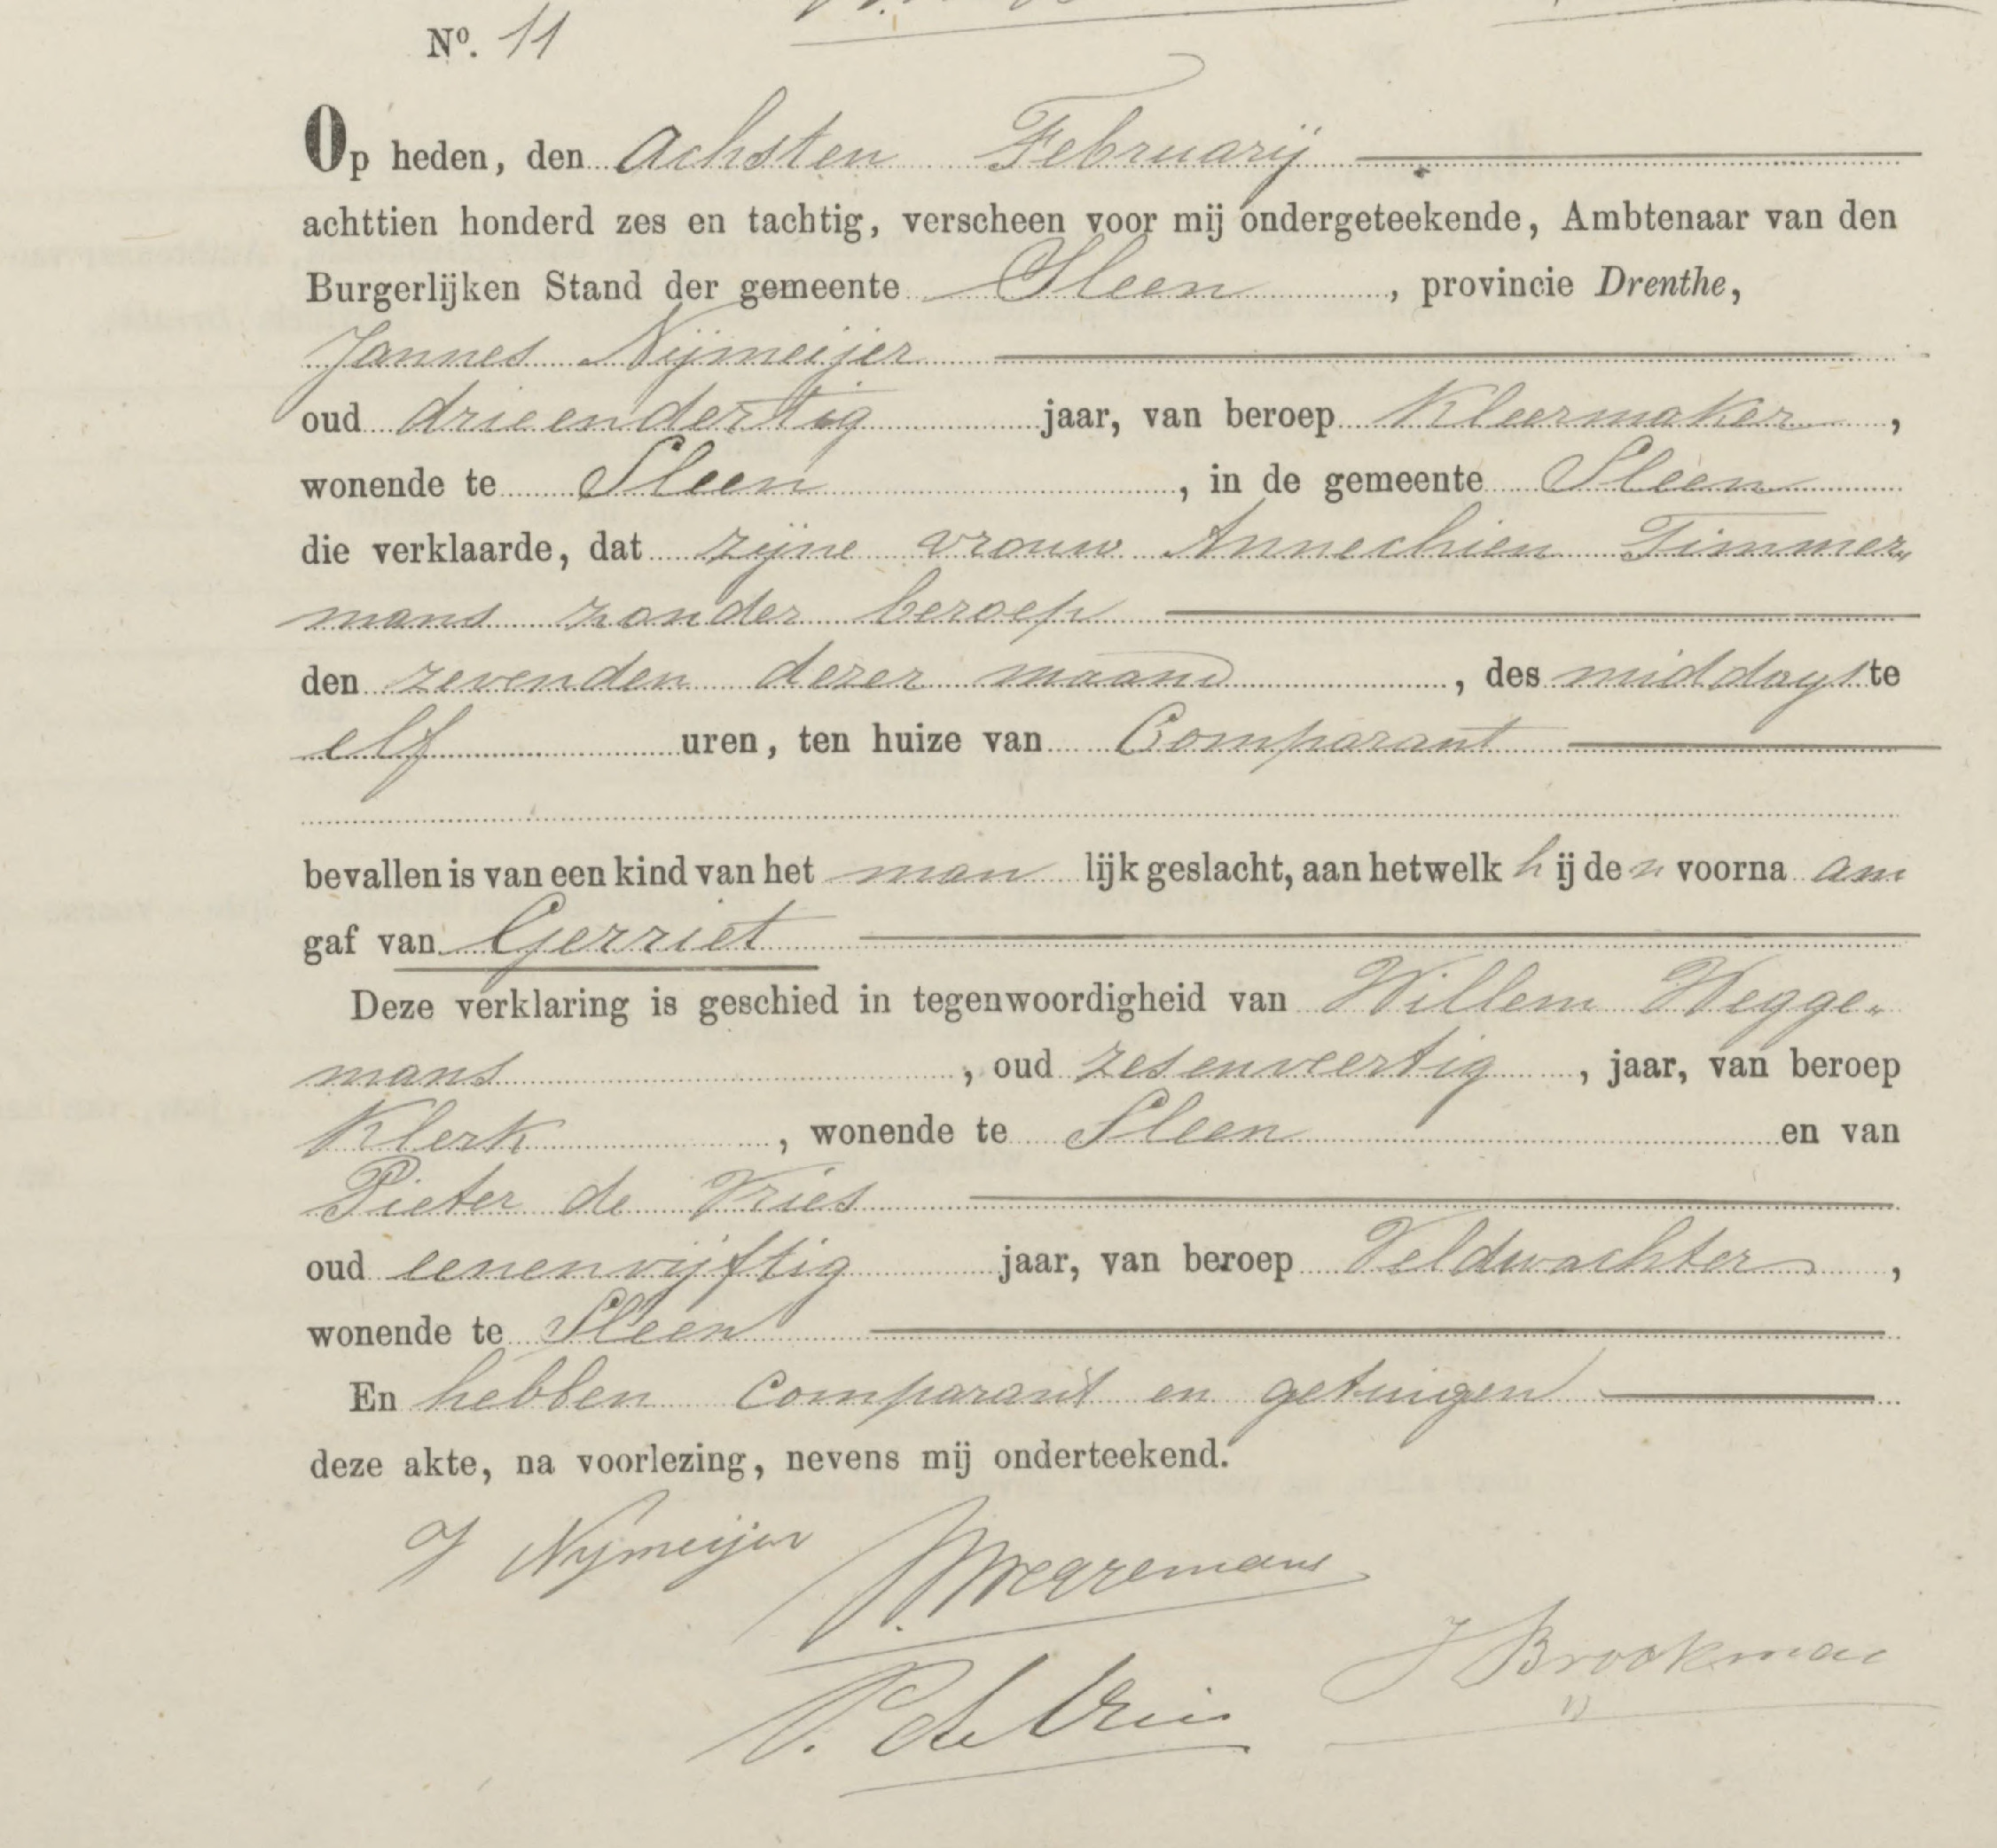 Nº. 11
Op heden, den achsten Februarij
achttien honderd zes en tachtig, verscheen voor mij ondergeteekende, Ambtenaar van den
Burgerlijken Stand der gemeente Sleen, provincie Drenthe,
Jannes Nijmeijer
oud drieendertig jaar, van beroep Kleermaker,
wonende te Sleen, in de gemeente Sleen
die verklaarde, dat zijne vrouw Annechien Timmer„
mans zonder beroep
den zevenden dezer maand, des middags te
elf uren, ten huize van Comparant
bevallen is van een kind van het man lijk geslacht, aan hetwelk h ij de n voorna am
gaf van Gerriet
Deze verklaring is geschied in tegenwoordigheid van Willem Wegge„
mans, oud zesenveertig, jaar, van beroep
Klerk, wonende te Sleen en van
Pieter de Vries
oud eenenvijftig jaar, van beroep Veldwachter,
wonende te Sleen
En hebben comparant en getuigen
deze akte, na voorlezing, nevens mij onderteekend.
J Nijmeijer
W. Weggemans
J Brookman
P. de Vries